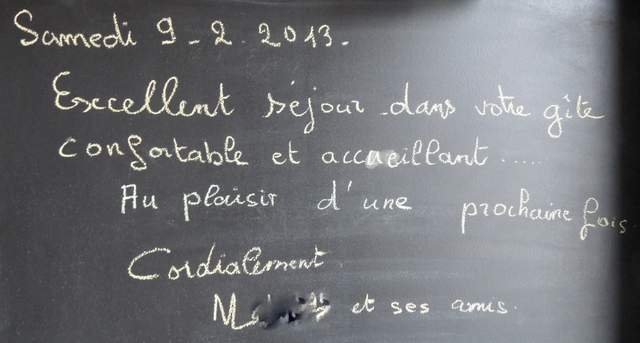 Samedi 9-2.2013.
Excellent séjour dans votre gîte
confortable et accueillant.....
Au plaisir d'une prochaine fois
Cordialement
et ses amis.